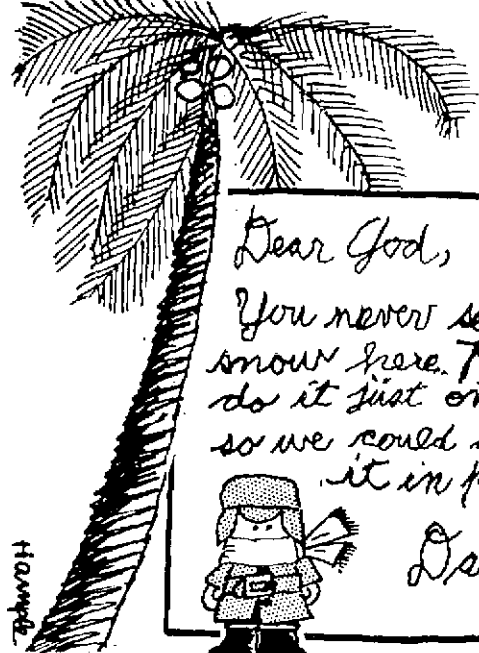 Dear God,
You never
snow here.
do it just
so we could
it in
Hample